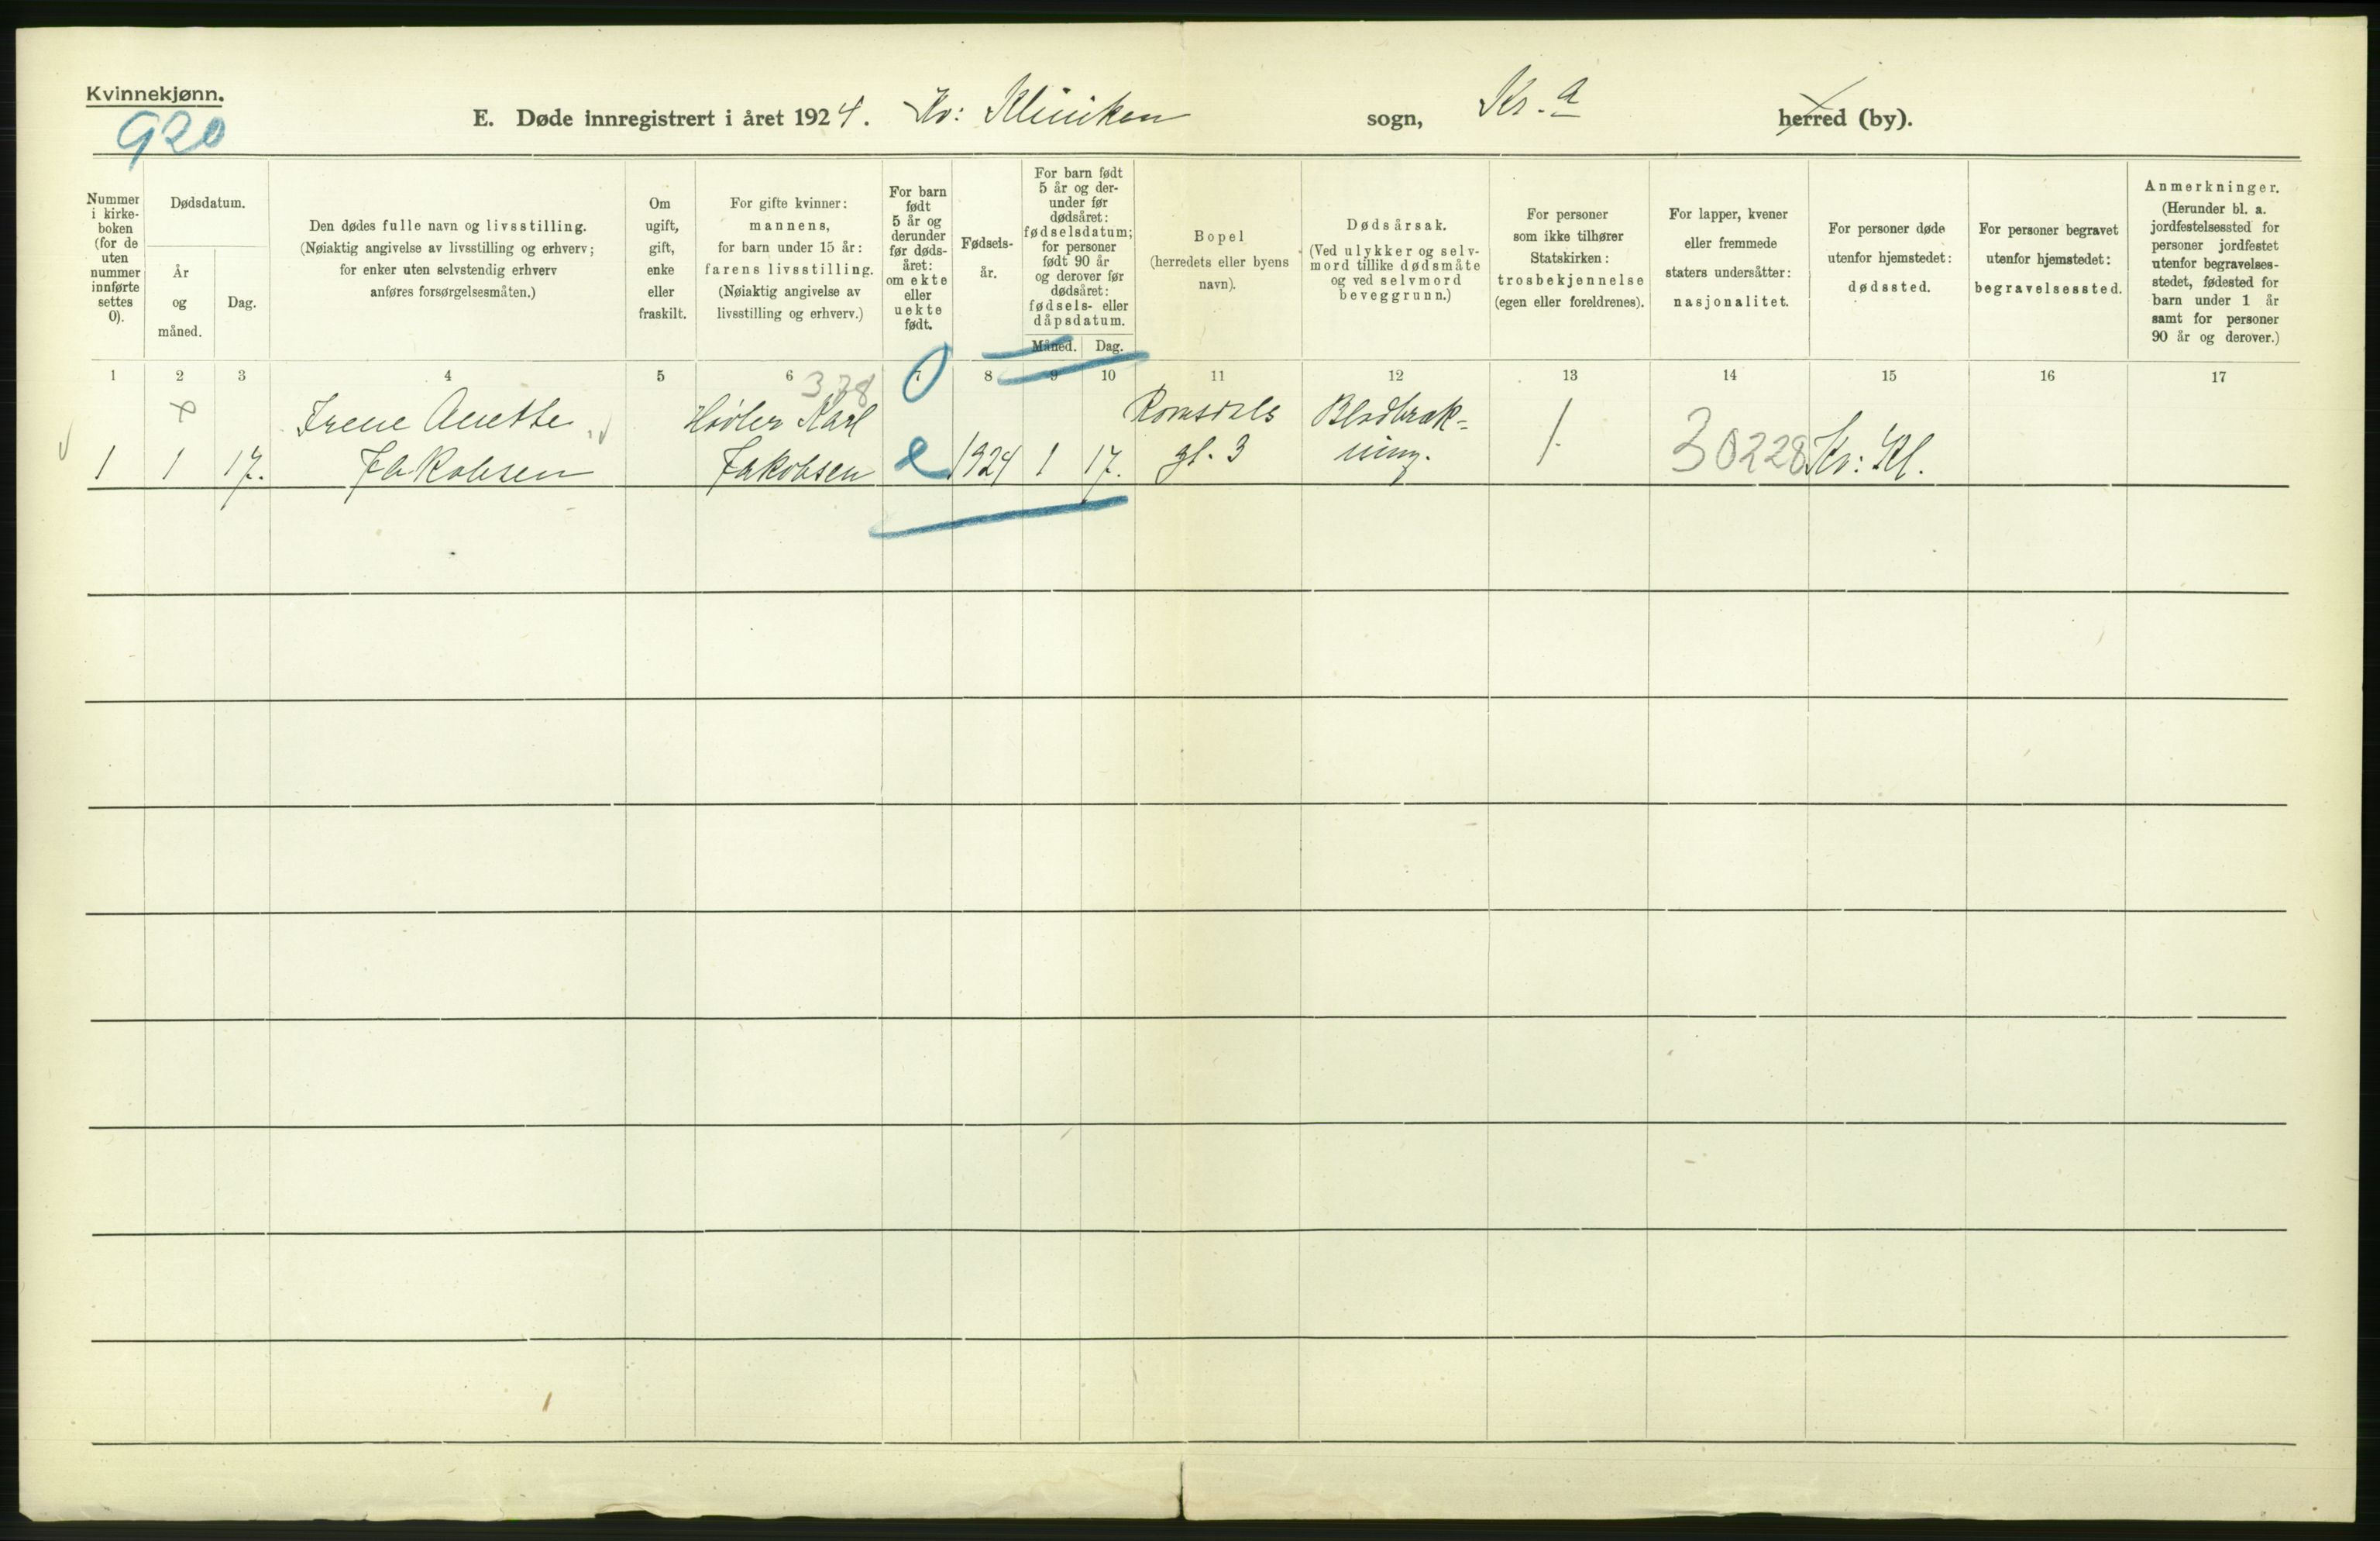 Kvinnekjønn.
920
E. Døde innregistrert i året 1924. Kv: Kliniken sogn, Kr.a herred (by).
Nummer
i kirke-
boken
(for de
uten
nummer
innførte
settes
0).
Dødsdatum.
År
og
måned.
Dag.
Den dødes fulle navn og livsstilling.
(Nøiaktig angivelse av livsstilling og erhverv;
for enker uten selvstendig erhverv
anføres forsørgelsesmåten.)
Om
ugift,
gift,
enke
eller
fraskilt.
For gifte kvinner:
mannens,
for barn under 15 år:
farens livsstilling.
(Nøiaktig angivelse av
livsstilling og erhverv.)
For barn
født
5 år og
derunder
før døds-
året:
om ekte
eller
uekte
født.
Fødsels-
år.
For barn født
5 år og der-
under før
dødsåret:
fødselsdatum;
for personer
født 90 år
og derover før
dødsåret:
fødsels- eller
dåpsdatum.
Måned. Dag.
Bopel
(herredets eller byens
navn).
Dødsårsak.
(Ved ulykker og selv-
mord tillike dødsmåte
og ved selvmord
beveggrunn.)
For personer
som ikke tilhører
Statskirken:
trosbekjennelse
(egen eller foreldrenes).
For lapper, kvener
eller fremmede
staters undersåtter:
nasjonalitet.
For personer døde
utenfor hjemstedet:
dødssted.
For personer begravet
utenfor hjemstedet:
begravelsessted.
Anmerkninger.
(Herunder bl. a.
jordfestelsessted for
personer jordfestet
utenfor begravelses-
stedet, fødested for
barn under 1 år
samt for personer
90 år og derover.)
1 2 3 4 5 6 7 8 9 10 11 12 13 14 15 16 17
328 0
Irene Anette Høvler Karl Romsdals Blodbræk-
1 1 17. Jakobsen Jakobsen e 1924 1 17. gt. 3 ning. 1. 30228 Kv: Kl.